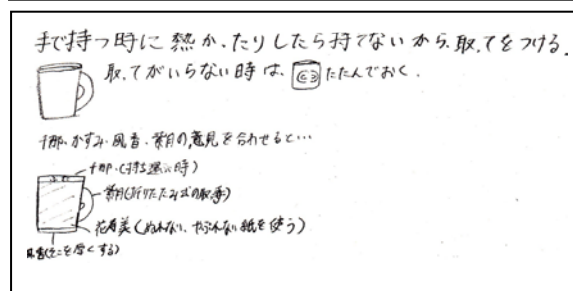 手で持つ時に熱かったりしたら持てないから、取ってをつける。
取ってがいらない時は、たたんでおく。
千那・かすみ・風音・紫月の意見を合わせると…
千那(持ち運ぶ時)
紫月(折りたたみ式の取っ手)
花寿美(ぬれない、やぶれない紙を使う)
風音(そこを厚くする)